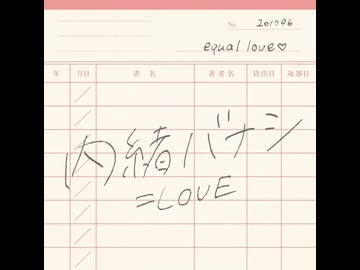 No 201796
equal love♡
年 月日 書名 著者名 貸出日 返却日
内緒バナシ
=LOVE